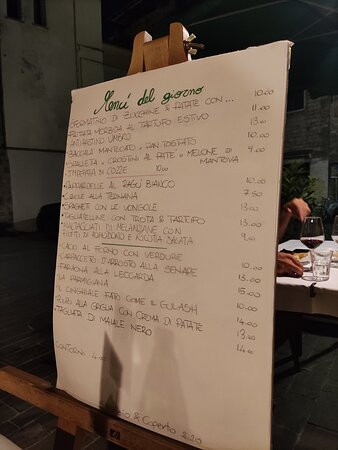 Menù del giorno
SFORMATINO DI ZUCCHINE & PATATE CON... 10.00
FRITTATA MORBIDA AL TARTUFO ESTIVO 11.00
ANTIPASTINO UMBRO 13.00
BACCALÀ MANTECATO e PAN TOSTATO 10.00
CROSTINI AL PATE e MELONE DI MANTOVA 9.00
IMPEPATA DI COZZE 10.00
PAPPARDELLE AL RAGÙ BIANCO 10.00
CIRIOLE ALLA TERNANA 7.50
SPAGHETTI CON LE VONGOLE 13.00
TAGLIATELLINE CON TROTA & TARTUFO 13.00
MALTAGLIATI DI MELANZANE CON
FILETTI DI POMODORO E RICOTTA SALATA 9.00
CACIO AL FORNO CON VERDURE 10.00
CARPACCETO D'ARROSTO ALLA SENAPE 13.00
FARAONA ALLA LECCARDA 15.00
LA PARMIGIANA 10.00
IL CINGHIALE FATTO COME IL GULASH 14.00
POLPO ALLA GRIGLIA CON CREMA DI PATATE 13.00
TAGLIATA DI MAIALE NERO 14.00
CONTORNI 4.00
& Coperto 2.20